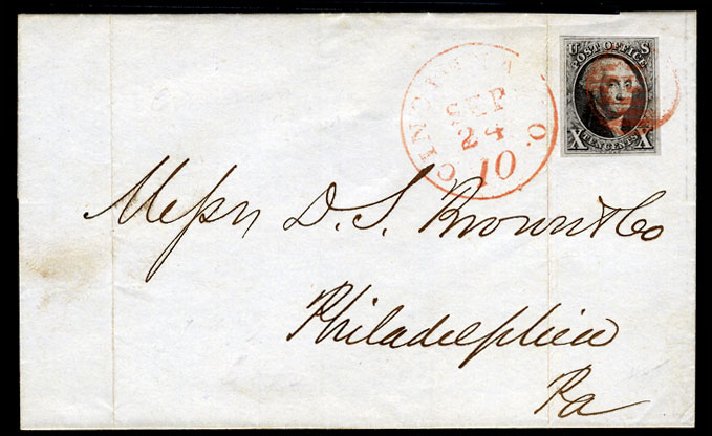 U S
POST OFFICE
X TEN CENTS X
CINCINNATI O.
SEP
24
10
Messrs D. S. Brown & Co
Philadelphia
Pa